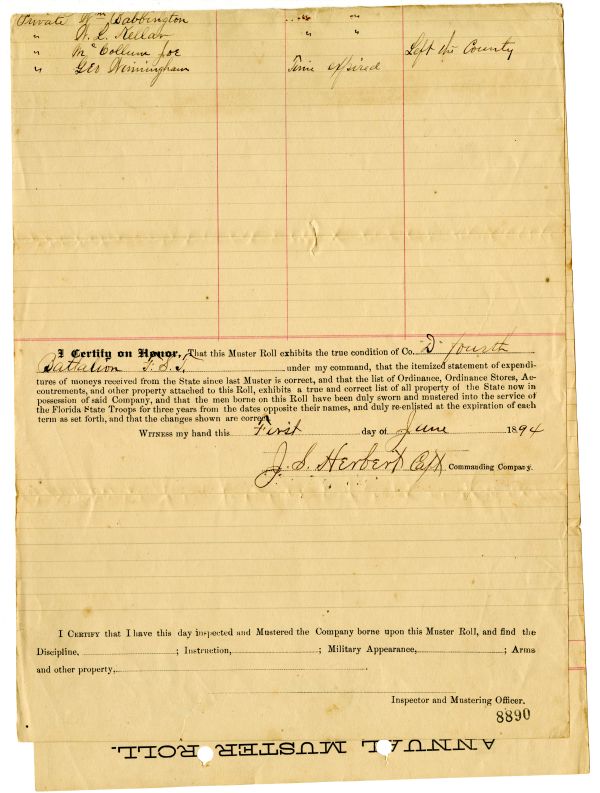 Private Wm Babbington " "
" W. L. Kellar " "
" McCollum Joe Left the County
" Geo Winningham Time expired
I Certify on Honor, That this Muster Roll exhibits the true condition of Co. D fourth
Battalion F.S.T. under my command, that the itemized statement of expendi-
tures of moneys received from the State since last Muster is correct, and that the list of Ordinance, Ordinance Stores, Ac-
coutrements, and other property attached to this Roll, exhibits a true and correct list of all property of the State now in
possession of said Company, and that the men borne on this Roll have been duly sworn and mustered into the service of
the Florida State Troops for three years from the dates opposite their names, and duly re-enlisted at the expiration of each
term as set forth, and that the changes shown are correct.
Witness my hand this First day of June 1894
J. S. Herbert Capt Commanding Company.
I Certify that I have this day inspected and Mustered the Company borne upon this Muster Roll, and find the
Discipline, ; Instruction, ; Military Appearance, ; Arms
and other property,
Inspector and Mustering Officer.
8890
ANNUAL MUSTER ROLL.